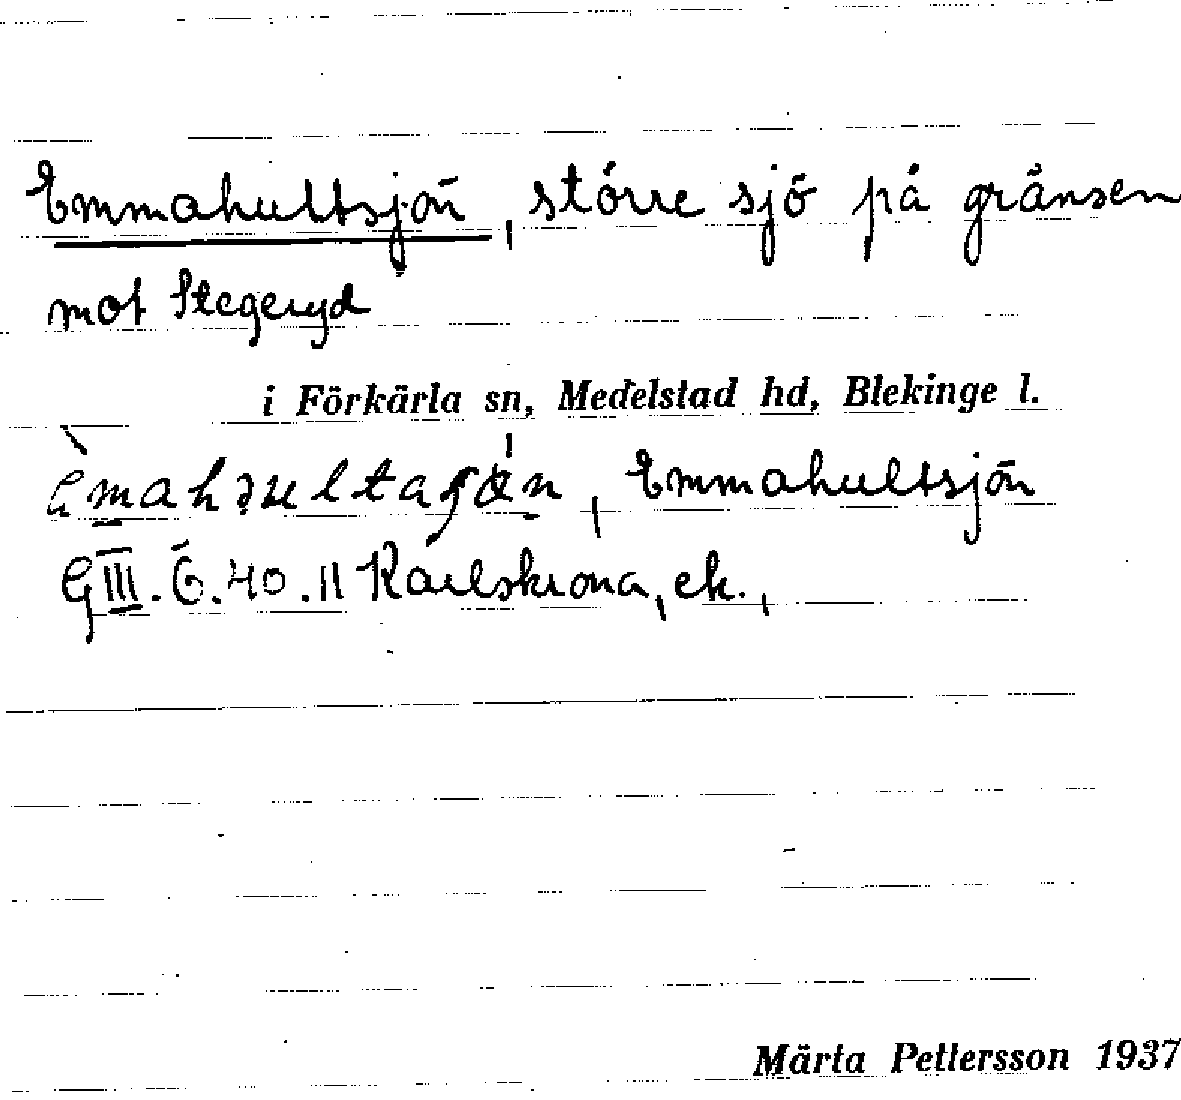 Emmahultsjön, större sjö på gränsen
mot Stegeryd
i Förkärla sn, Medelstad hd, Blekinge l.
Emmahultsjön
GIII.6.40.11 Karlskrona, ek.,
Märta Pettersson 1937